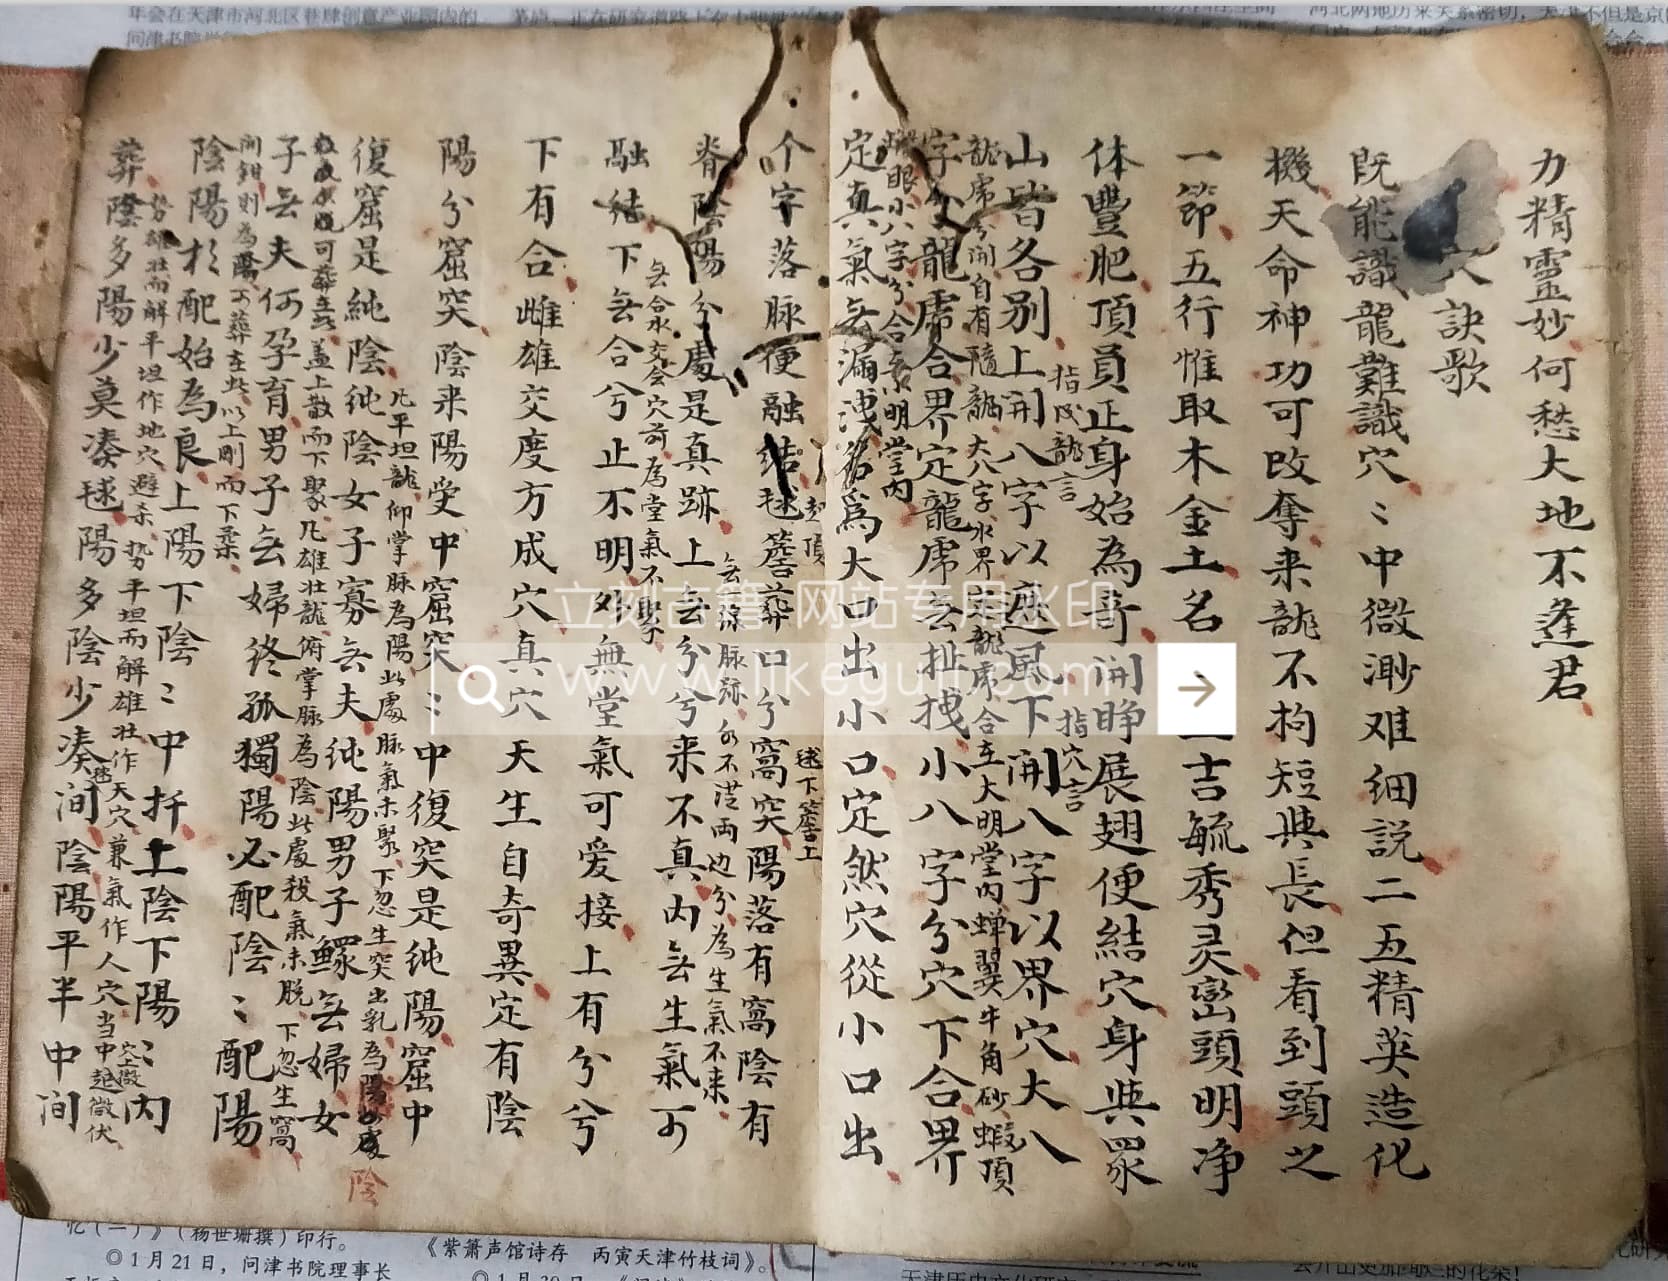 力精靈妙何愁大地不逢君
訣歌
既能識龍難識穴〻中微渺难细説二五精英造化
機天命神功可改奪来龍不拘短與長但看到頭之
一節五行惟取木金土名吉毓秀灵巒頭明净
体豐肥頂員正身始為奇開睁展翅便結穴身與眾
指成龍言
指穴言
山皆各别上開八字以遮風下開八字以界穴大八
龍虎分開自有隨龍大八字水界定龍虎合在大明堂内蟬翼牛角砂蝦頂
字分龍虎合界定龍虎無扯拽小八字分穴下合界
眼小八字分合在明堂内
定真氣無漏洩名為大口出小口定然穴從小口出
个字落脉便融結毬簷葬口分窩突陽落有窩陰有
起頂
毬下簷上
脊陰陽分處是真跡上無分兮来不真内無生氣可
無脉跡水不澄両边分為生氣不来
融結下無合兮止不明外無堂氣可爱接上有分兮
無合水交会穴前為堂氣不聚
下有合雌雄交度方成穴真穴天生自奇異定有陰
陽分窟突陰来陽受中窟突〻中復突是純陽窟中
凡平坦龍仰掌脉為陽此處脉氣未聚下忽生突出乳為陽此處
陰
復窟是純陰純陰女子寡無夫純陽男子鰥無婦女
可葬在此盖上散而下聚凡雄壮龍俯掌脉為陰此處殺氣未脱下忽生窩
子無夫何孕育男子無婦終孤獨陽必配陰〻配陽
開鉗則為陽可葬在此以上剛而下柔
陰陽於配始為良上陽下陰〻中扦上陰下陽〻内
势雄壮而解平坦作地穴避杀势平坦而解雄壮作天穴兼氣作人穴当中起微伏
葬陰多陽少莫凑毬陽多陰少凑簷陰陽平半中间